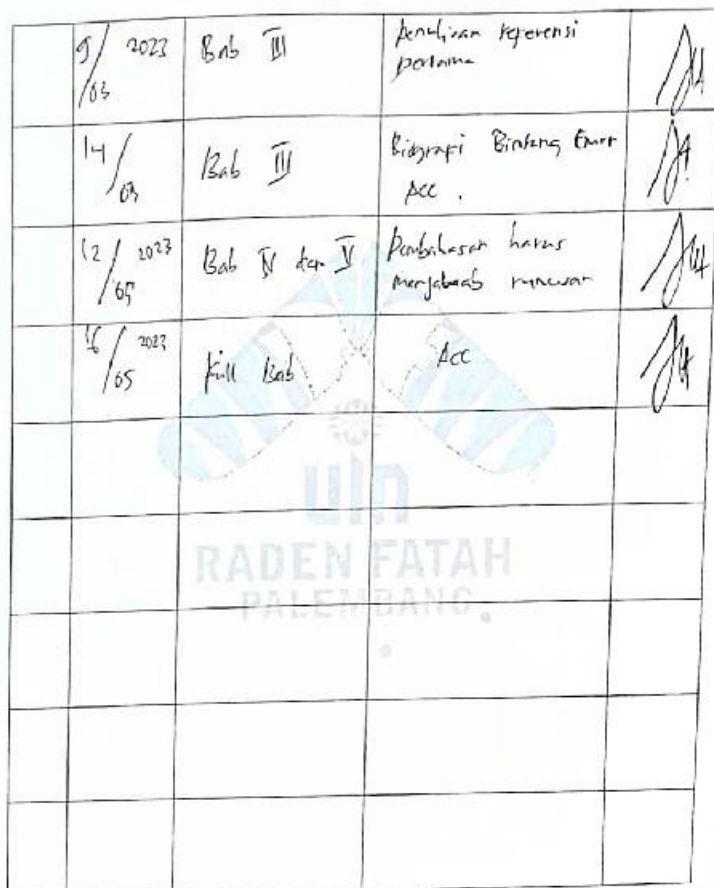 9/03 2023 Bab III Penulisan referensi
pertama
14/03 Bab III Biografi Bintang Emon
Acc .
12/05 2023 Bab IV dan V Pembahasan harus
menjawab rumusan
16/05 2023 Full Bab Acc
uin
RADEN FATAH
PALEMBANG